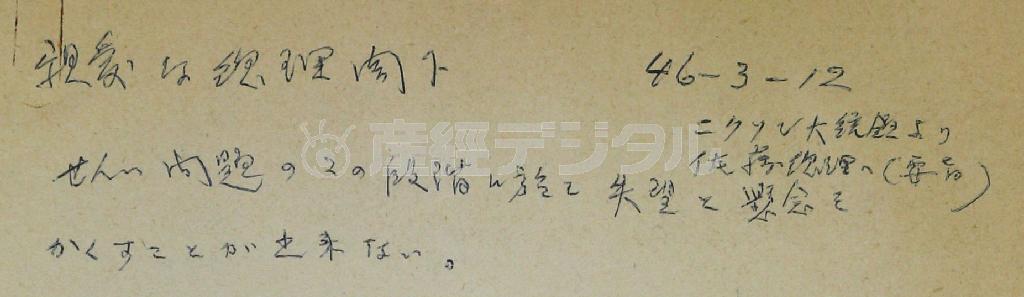 親愛な総理閣下
46-3-12
ニクソン大統領より
佐藤総理へ(要旨)
せんい問題のこの段階に於て失望と懸念を
かくすことが出来ない。
産經デジタル